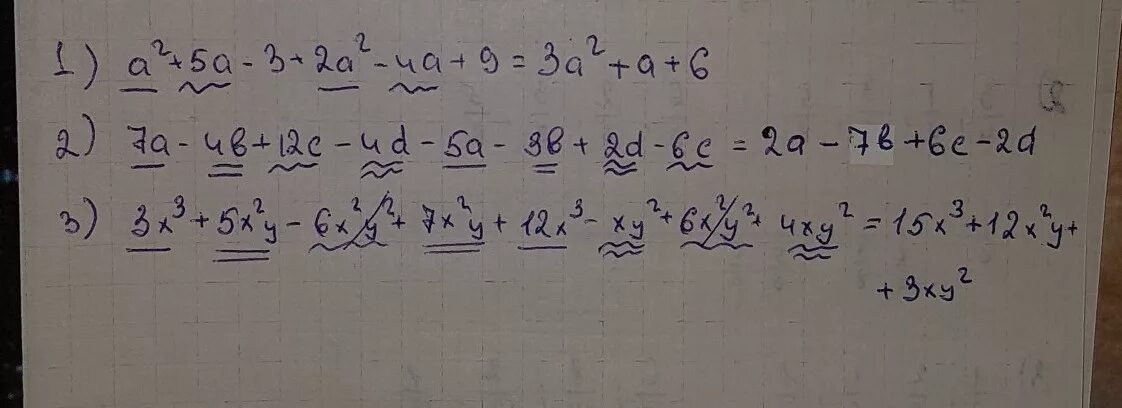 1) a²+5a-3+2a²-4a+9=3a²+a+6
2) 7a-4в+12c-4d-5a-3в+2d-6c=2a-7в+6c-2d
3) 3x³+5x²y-6x²y²+7x²y+12x³-xy²+6x²y²+4xy²=15x³+12x²y+
+3xy²